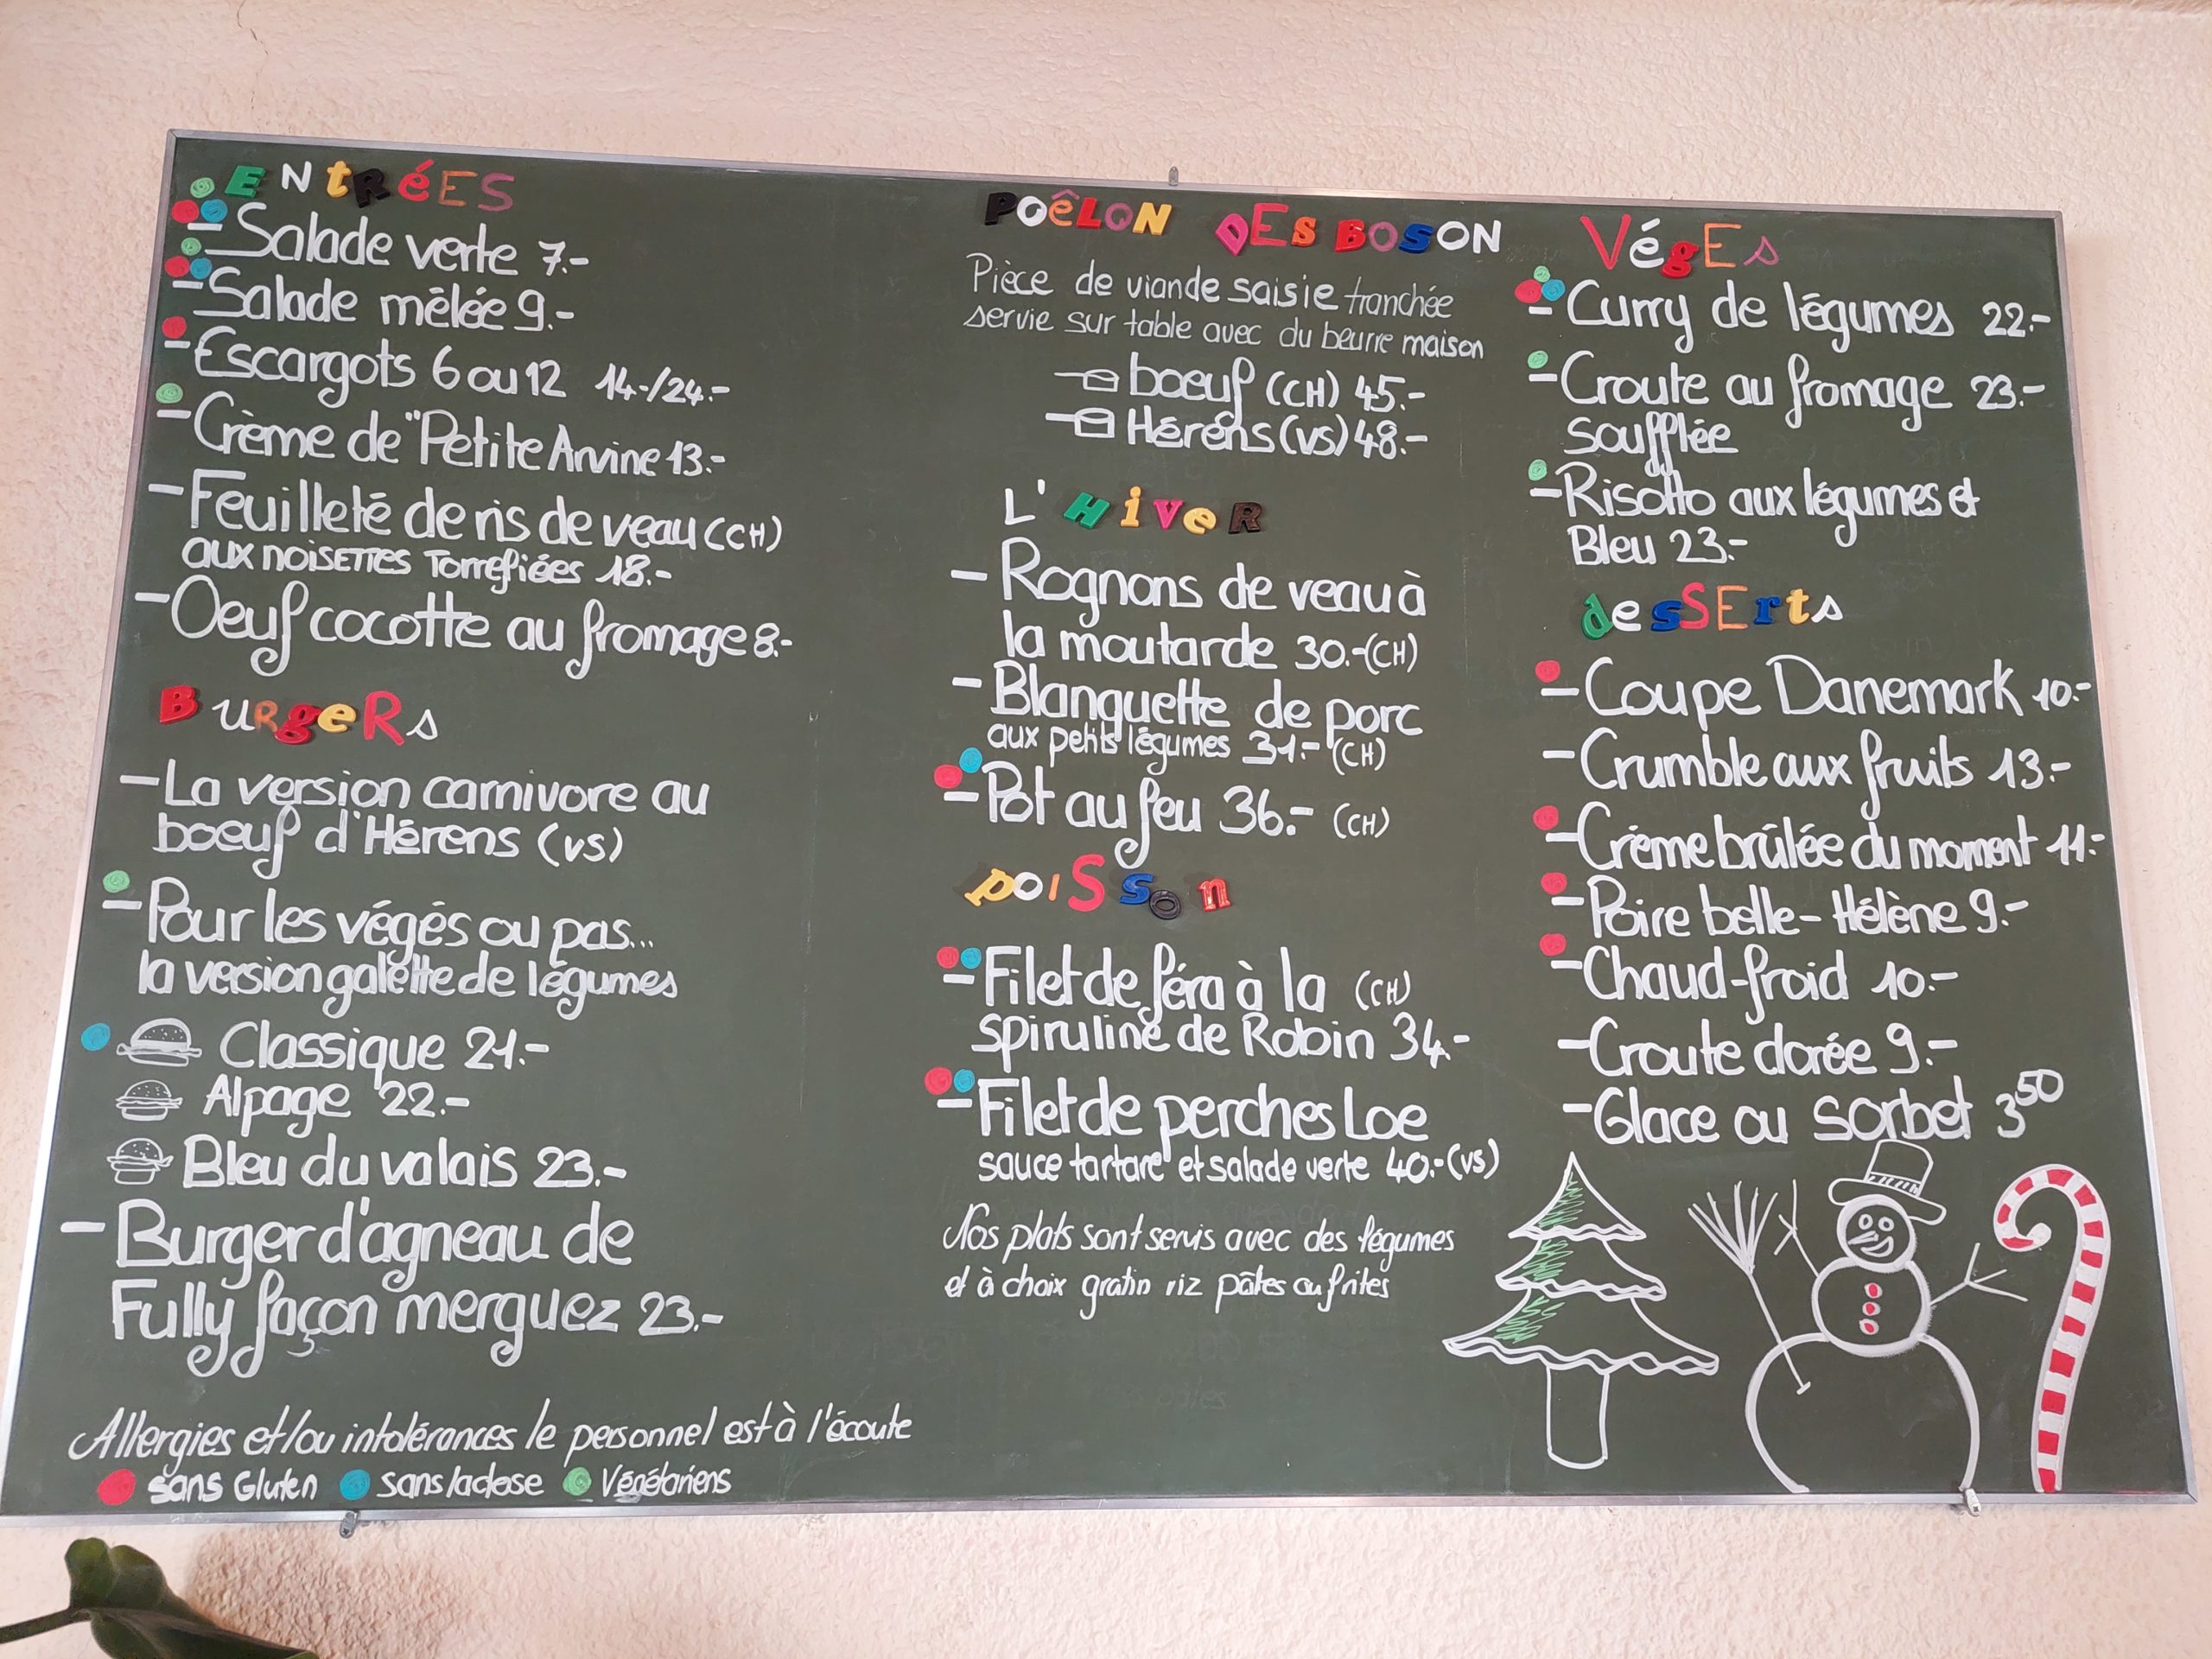 ENtRéES
Salade verte 7.-
Salade mêlée 9.-
Escargots 6 ou 12 14.-/24.-
Crème de "Petite Arvine 13.-
Feuilleté de ris de veau (CH)
aux noisettes Torrefiées 18.-
Oeuf cocotte au fromage 8.-
BuRgeRs
La version carnivore au
boeuf d'Hérens (VS)
Pour les végés ou pas...
la version galette de légumes
Classique 21.-
Alpage 22.-
Bleu du valais 23.-
Burger d'agneau de
Fully façon merguez 23.-
Allergies et/ou intolérances le personnel est à l'écoute
sans Gluten sans lactose Végétariens
POÊLON DES BOSON
Pièce de viande saisie tranchée
servie sur table avec du beurre maison
boeuf (CH) 45.-
Hérens (VS) 48.-
L'HiveR
Rognons de veau à
la moutarde 30.- (CH)
Blanquette de porc
aux petits légumes 31.- (CH)
Pot au feu 36.- (CH)
poiSson
Filet de féra à la (CH)
spiruline de Robin 34.-
Filet de perches Loe
sauce tartare et salade verte 40.- (VS)
Nos plats sont servis avec des légumes
et à choix gratin riz pâtes ou frites
VégEs
Curry de légumes 22.-
Croute au fromage 23.-
soufflée
Risotto aux légumes et
Bleu 23.-
desSErts
Coupe Danemark 10.-
Crumble aux fruits 13.-
Crème brûlée du moment 11.-
Poire belle-Hélène 9.-
Chaud-froid 10.-
Croute dorée 9.-
Glace ou sorbet 3⁵⁰